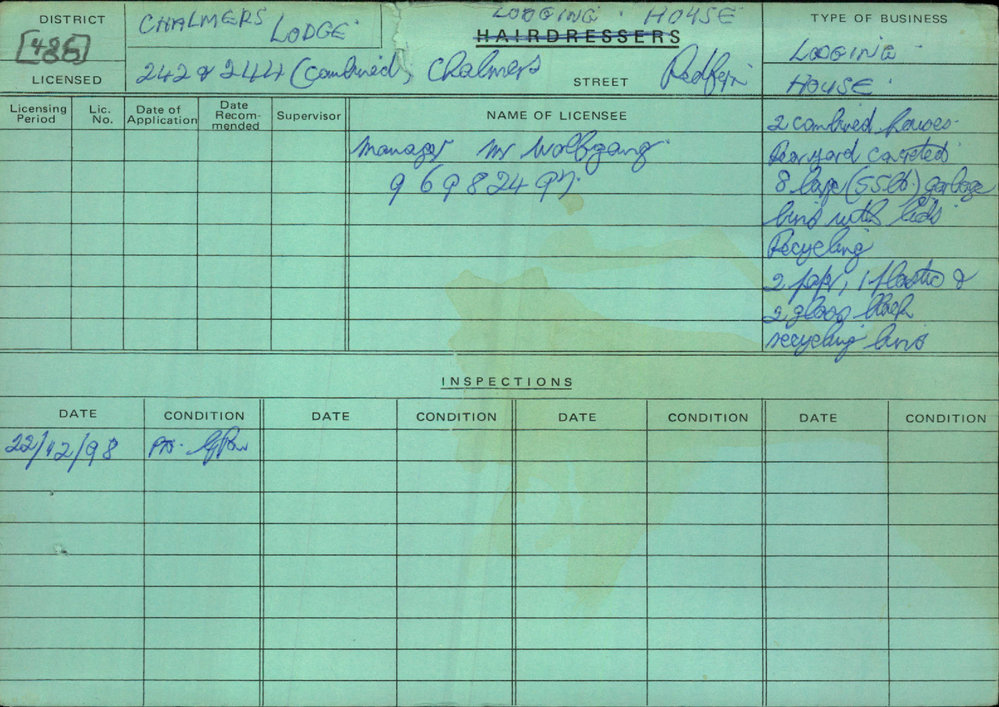 DISTRICT
[486]
LICENSED
CHALMERS LODGE
242 & 244 (combined) Chalmers STREET Redfern
LODGING HOUSE
HAIRDRESSERS
TYPE OF BUSINESS
LODGING
HOUSE
Licensing Period
Lic. No.
Date of Application
Date Recom-mended
Supervisor
NAME OF LICENSEE
manager Mr Wolfgang
9 69 8 24 97
2 combined houses
Rearyard
8 large (55lt.) garbage
bins with lids
Recycling
2 paper, 1 plastic &
2 glass black
recycling bins
INSPECTIONS
DATE CONDITION DATE CONDITION DATE CONDITION DATE CONDITION
22/12/98